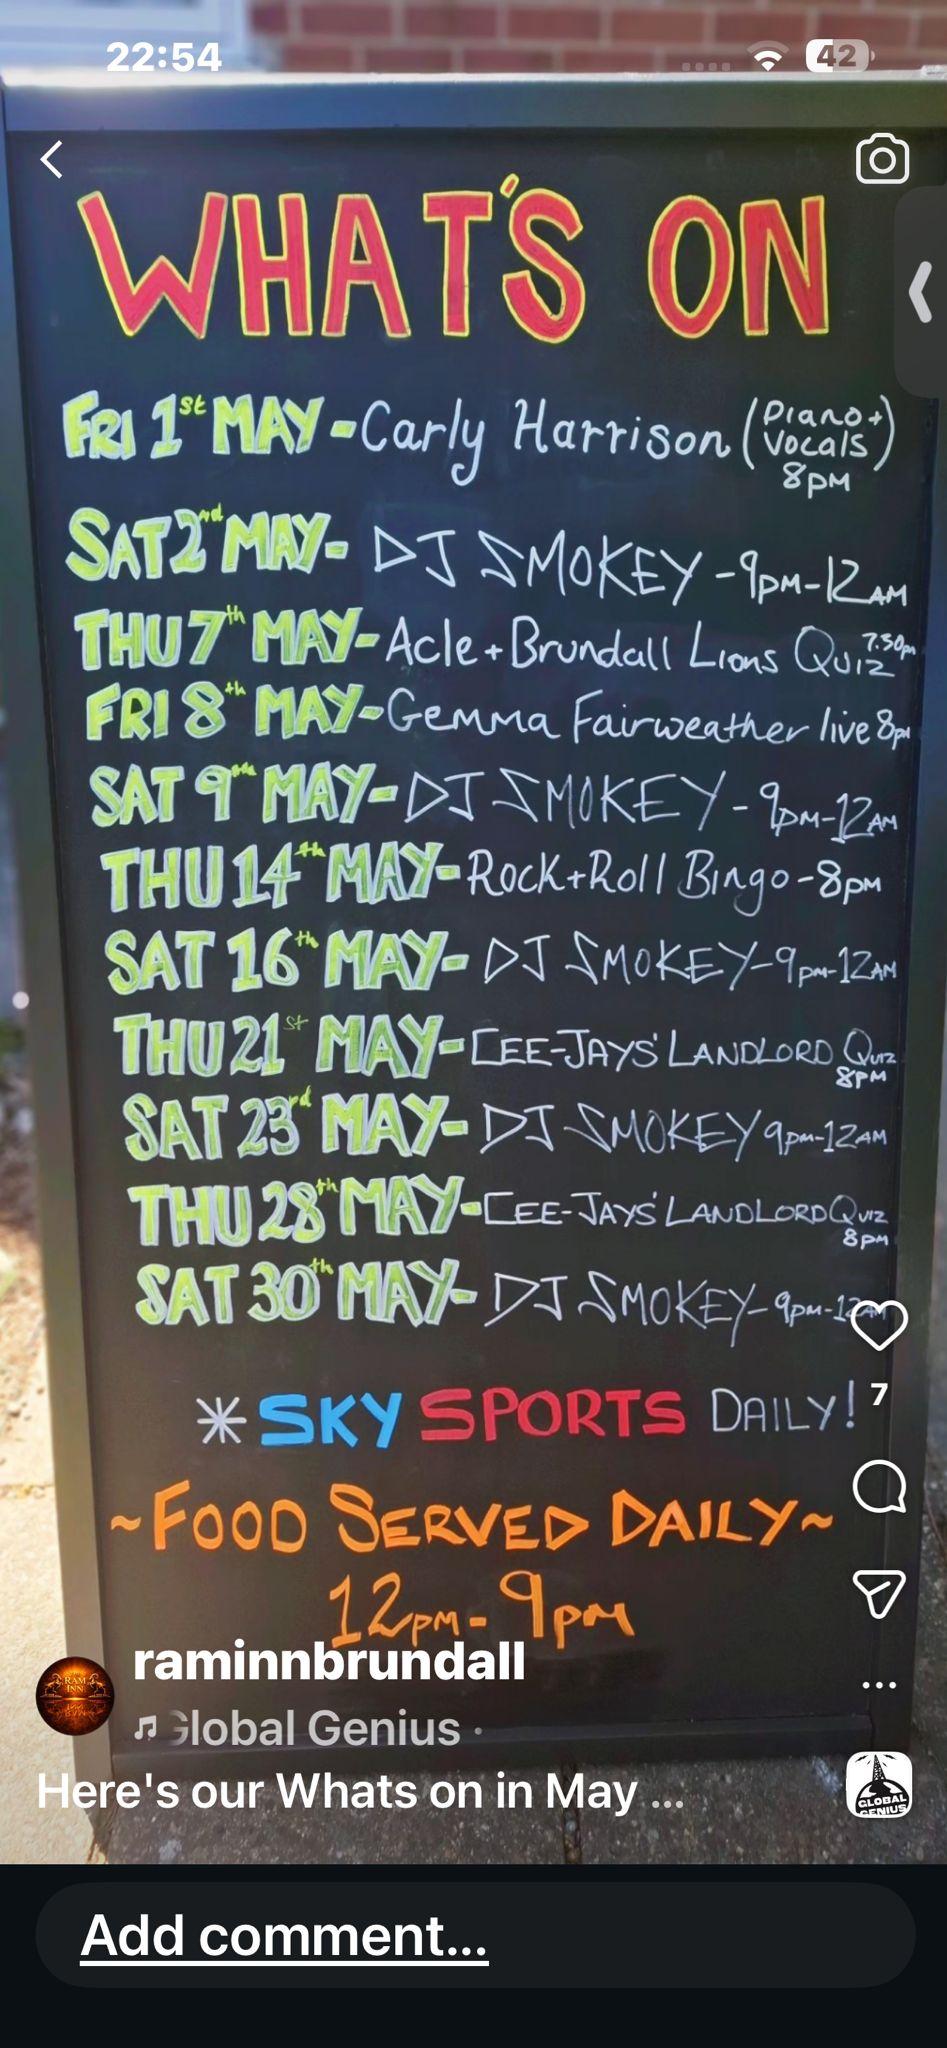 22:54
42
WHAT'S ON
FRI 1st MAY - Carly Harrison (Piano + Vocals) 8PM
SAT 2nd MAY - DJ SMOKEY - 9PM - 12AM
THU 7th MAY - Acle + Brundall Lions Quiz 7.30pm
FRI 8th MAY - Gemma Fairweather live 8pm
SAT 9th MAY - DJ SMOKEY - 9PM - 12AM
THU 14th MAY - Rock + Roll Bingo - 8PM
SAT 16th MAY - DJ SMOKEY - 9PM - 12AM
THU 21st MAY - CEE-JAYS' LANDLORD Quiz 8PM
SAT 23rd MAY - DJ SMOKEY 9pm - 12AM
THU 28th MAY - CEE-JAYS' LANDLORD Quiz 8PM
SAT 30th MAY - DJ SMOKEY - 9pm - 12AM
* SKY SPORTS DAILY!
7
~ FOOD SERVED DAILY ~
12PM - 9PM
raminnbrundall
RAM INN
Global Genius ·
Here's our Whats on in May ...
GLOBAL GENIUS
Add comment...